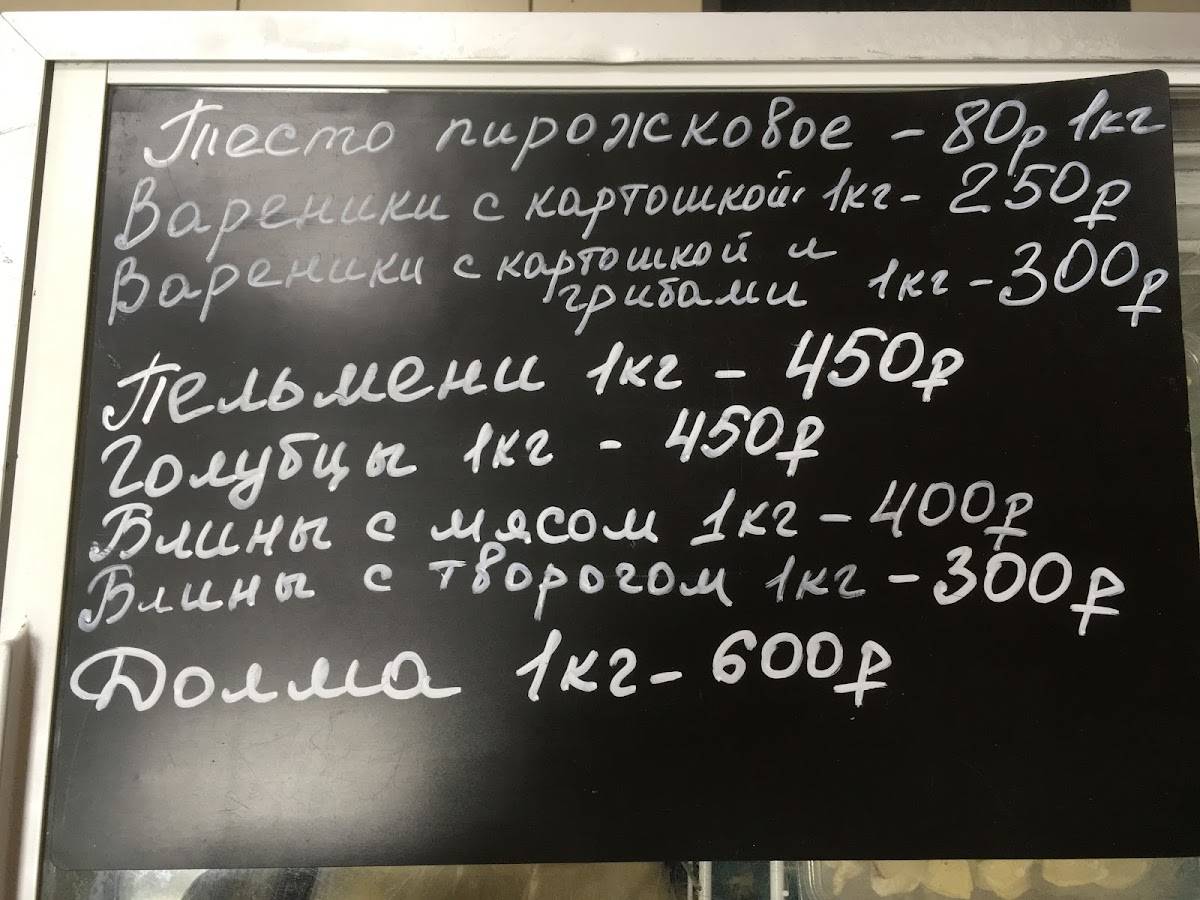 Тесто пирожковое - 80р 1кг
Вареники с картошкой 1кг - 250₽
Вареники с картошкой и
грибами 1кг - 300₽
Пельмени 1кг - 450₽
Голубцы 1кг - 450₽
Блины с мясом 1кг - 400₽
Блины с творогом 1кг - 300₽
Долма 1кг - 600₽